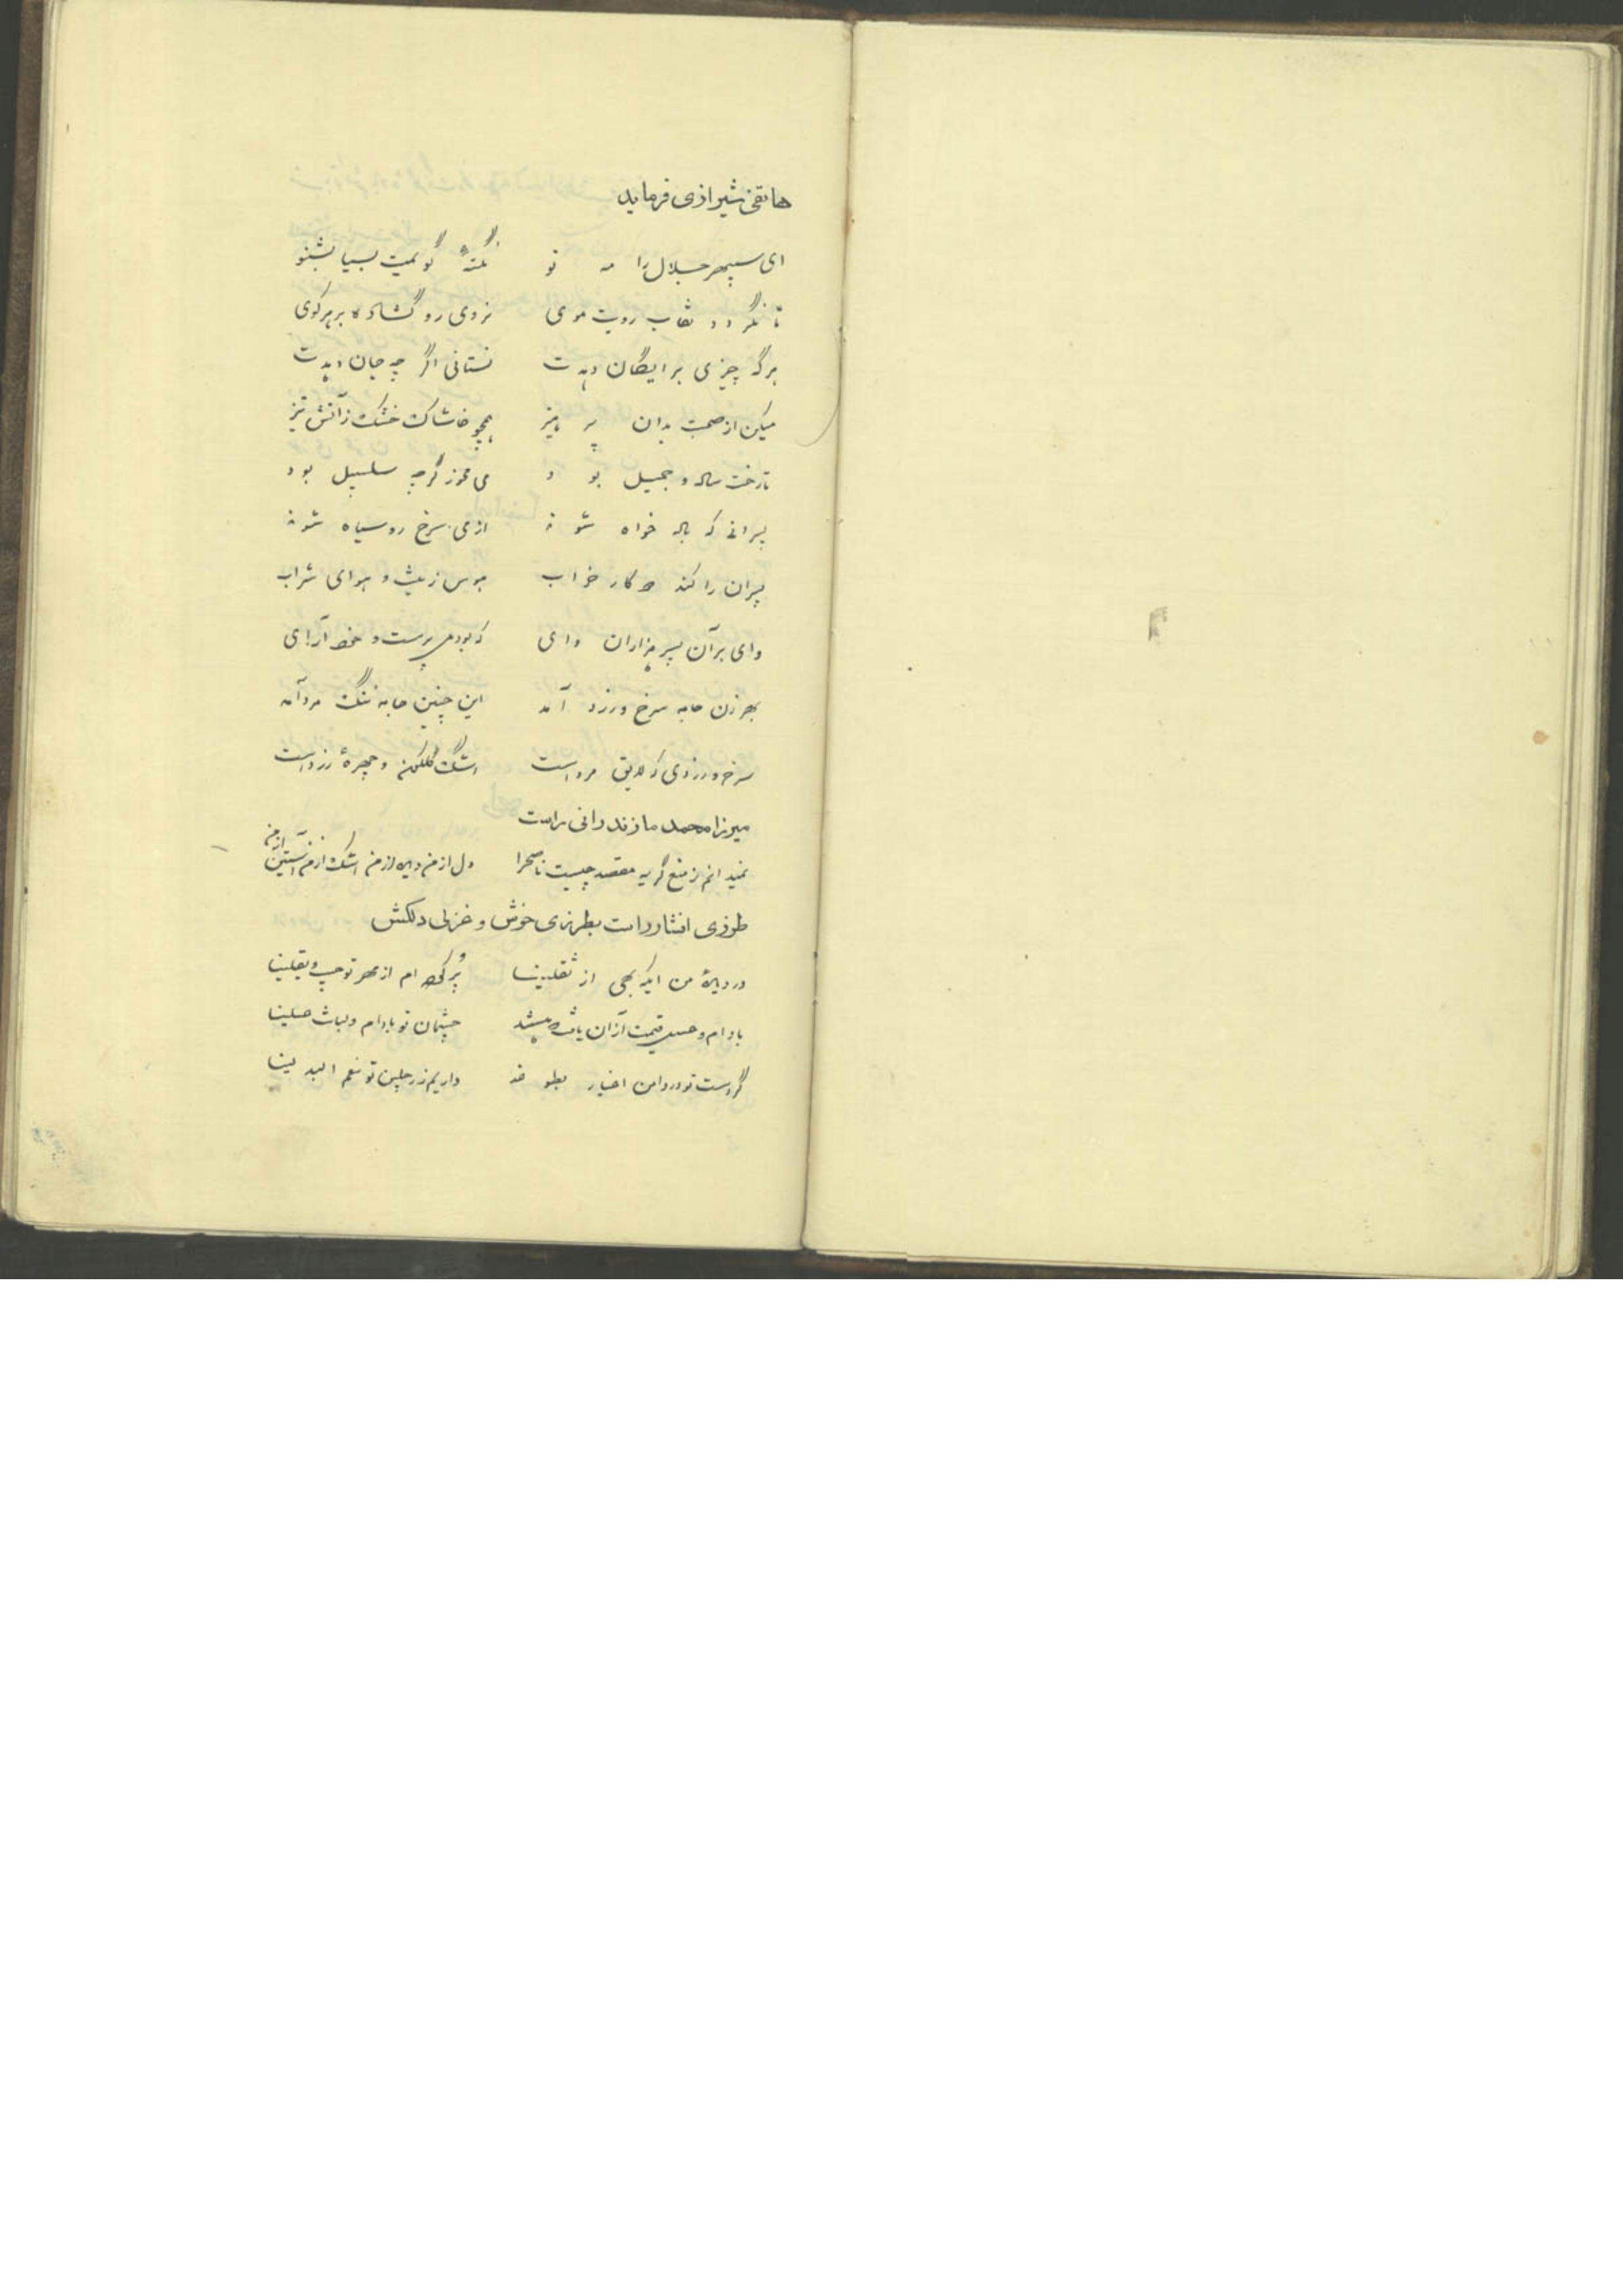 هاتفی شیرازی فرماید
ای سپهر جلال را مه نو نکتهٔ گویمت بیا بشنو
تا نگردد نقاب رویت موی نروی رو گشاده بر هر کوی
هر که چیزی برایگان دهدت نستانی اگر چه جان دهدت
میکن از صحبت بدان پرهیز همچو خاشاک خشک ز آتش تیز
تا رخت ساده و جمیل بود می مخور گرچه سلسبیل بود
پسرانی که باده خواه شوند از می سرخ رو سیاه شوند
پسران را کند کار خراب هوس زینت و هوای شراب
وای بر آن پسر هزاران وای که بود می پرست و خود آرای
بهر زن جامه سرخ و زرد آمد این چنین جامه ننگ مرد آمد
سرخ و زردی که لایق مرد است اشک گلگون و چهرهٔ زرد است
میرزا محمد مازندرانی راست
نمیدانم ز منع گریه مقصد چیست ناصح را دل از من دیده از من اشک از من آستین از من
طرزی افشار راست بطرزی خوش و غزلی دلکش
در دیدهٔ من ایکه بهی از ثقلینا پر کرده ام از مهر تو جیب و بقلینا
بادام و عسل قیمت از آن یافته چشمان تو بادام و لبانت عسلینا
گر دست تو در دامن اغیار بطوقد داریم ز هجلین تو نعم البدلینا